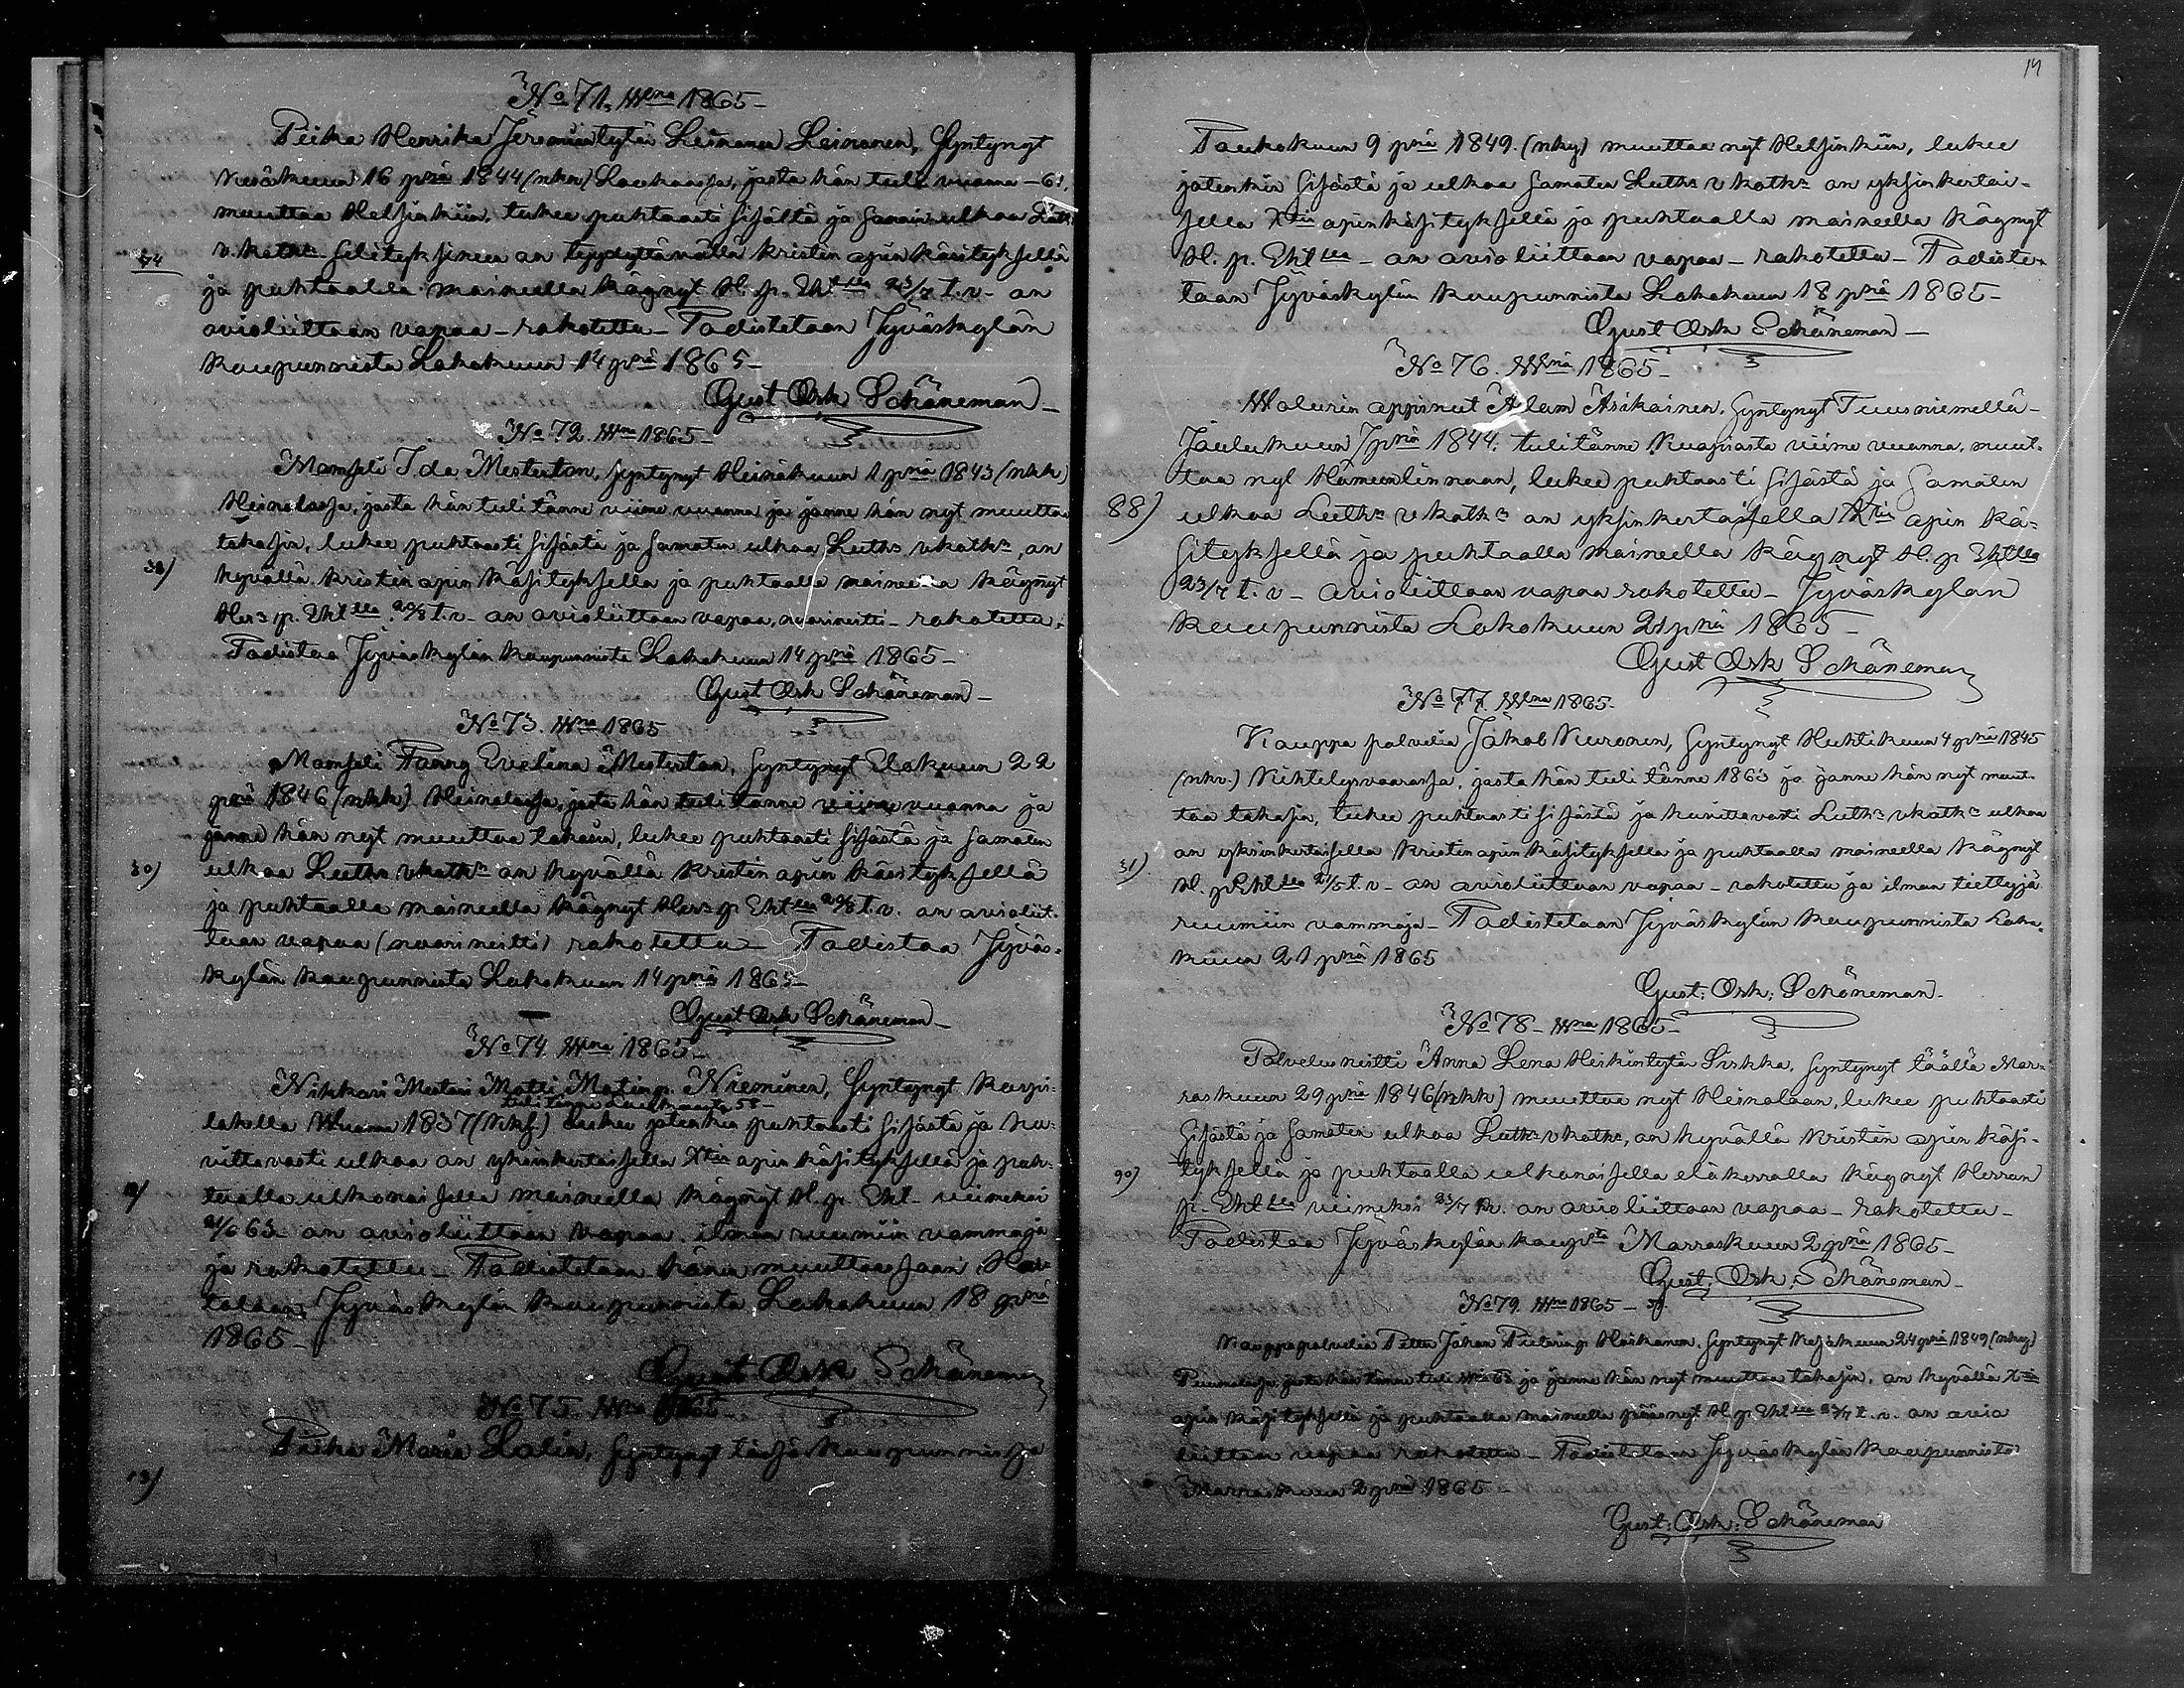 No 71. Wna 1865 –
Piika Henrika Jeremiantytär Leinonen Leinonen, Syntynyt
Kesäkuun 16 pnä 1844 (nkn) Laukaassa, josta hän tuli vuonna –61,
muuttaa Helsinkiin, lukee puhtaasti sisältä ja samoin ulkoa Luth
v. kathn selityksineen on tyydyttävällä kristin opin käsityksellä
54
ja puhtaalla maineella käynyt H. p. Ehtlla 23/7 t. v. on
avioliittoon vapaa – rokotettu – Todistetaan Jyväskylän
Kaupunnista Lokakuun 14 pnä 1865 –
Gust Osk Schöneman –
No 72. Wna 1865 –
Mamseli Ida Mesterton, syntynyt Heinäkuun 1 pnä 1843 (nkk)
Heinolassa, josta hän tuli tänne viime vuonna ja jonne hän nyt muuttaa
takasin, lukee puhtaasti sisästä ja samaten ulkoa Luthn vkathn, on
hyvällä kristin opin käsityksellä ja puhtaalla maineella käynyt
Hern p. Ehtlla 20/8 t. v. on avioliittoon vapaa, nuorineitti – rokotettu.
Todistaa Jyväskylän kaupunnista Lokakuun 14 pnä 1865 –
Gust Osk Schöneman –
No 73. Wna 1865
Mamseli Fanny Evelina Mesterton, Syntynyt Elokuun 22
pnä 1846 (nkk) Heinolassa, josta hän tuli tänne viime vuonna ja
jonne hän nyt muuttaa takasin, lukee puhtaasti sisästä ja samaten
30)
ulkoa Luthn vkathn on hyvällä kristin opin käsityksellä
ja puhtaalla maineella käynyt Hern p Ehtlla 20/8 t. v. on avioliit-
toon vapaa (nuorineitti) rokotettu – Todistaa Jyväs-
kylän kaupunnista Lokakuun 14 pnä 1865 –
Gust Osk Schöneman –
No 74. Wna 1865 –
Nikkari Mestari Matti Matinp. Nieminen, Syntynyt Kuopi-
tuli tänne Laukaasta 58 –
lahella Wuonna 1837 (nkf.) lukee jotenkin puhtaasti sisästä ja hu-
vittavasti ulkoa on yksinkertaisella Xtin opin käsityksellä ja puh-
taalla ulkonaisella maineella käynyt H. p. Eht – viimeksi
21/6 63 on avioliittoon vapaa, ilman ruumiin vammoja
ja rokotettu – Todistetaan hänen muuttaessaan
Jyväskylän kaupunnista Lokakuun 18 pnä
1865 –
Gust Osk Schöneman
No 75. Wna 1865 –
Piika Maria Lolin, Syntynyt tässä kaupunnissa
13)
14
Toukokuun 9 pnä 1849. (nky) muuttaa nyt Helsinkiin, lukee
jotenkin sisästä ja ulkoa samaten Luthn vkathn on yksinkertai-
sella Xtin opinkäsityksellä ja puhtaalla maineella käynyt
H. p. Ehtlla – on avioliittoon vapaa – rokotettu – Todiste-
taan Jyväskylän kaupunnista Lokakuun 18 pnä 1865 –
Gust Osk Schöneman –
No 76. Wnä 1865 –
Walurin oppinut Adam Asikainen, Syntynyt Tuusniemellä –
Joulukuun 7 pnä 1844. tuli tänne Kuopiosta viime vuonna, muut-
taa nyt Hämeenlinnaan, lukee puhtaasti sisästä ja samaten
88)
ulkoa Luthn vkathn on yksinkertaisella Xtin opin kä-
sityksellä ja puhtaalla maineella käynyt H. p Ehtlla
23/7 t. v – avioliittoon vapaa rokotettu – Jyväskylän
Kaupunnista Lokakuun 21 pnä 1865 –
Gust Osk Schöneman
No 77. Wna 1865 –
Kauppa palvelia Jakob Kuronen, Syntynyt Huhtikuun 4 pnä 1845
(nkv.) Kihtelysvaarassa, josta hän tuli tänne 1863 ja jonne hän nyt muut-
taa takasin, lukee puhtaasti sisästä ja huvittavasti Luthn vkathn ulkoa
on yksinkertaisella kristin opin käsityksellä ja puhtaalla maineella käynyt
31)
H. p Ehtlla 21/5 t. v – on avioliittoon vapaa – rokotettu ja ilman tiettyjä
ruumiin vammoja – Todistetaan Jyväskylän kaupunnista Loka-
kuun 21 pnä 1865
Gust: Osk: Schöneman –
No 78 – Wna 1865 –
Palvelus neitti Anna Lena Heikintytär Siskka, Syntynyt täällä Mar-
raskuun 29 pnä 1846 (nkk) muuttaa nyt Heinolaan, lukee puhtaasti
sisästä ja samaten ulkoa Luthn vkathn, on hyvällä kristin opin käsi-
90)
tyksellä ja puhtaalla ulkonaisella eläkerralla käynyt Herran
p. Ehtlla viimeksi 23/7 on avioliittoon vapaa – rokotettu –
Todistaa Jyväskylän kaupsta Marraskuun 2 pnä 1865 –
Gust: Osk: Schöneman –
No 79. Wna 1865 –
Kauppapalvelia Petter Johan Pieterinp Haikonen, Syntynyt Kesäkuun 24 pnä 1849 (nky)
Puumalassa josta hän tänne tuli Wna 63 ja jonne hän nyt muuttaa takasin, on hyvällä Xtin
opin käsityksellä ja puhtaalla maineella päässyt H. p. Ehtlla 23/7 t. v. on avio
liittoon vapaa rokotettu – Todistetaan Jyväskylän Kaupunnista
Marraskuun 2 pnä 1865
Gust: Osk: Schöneman